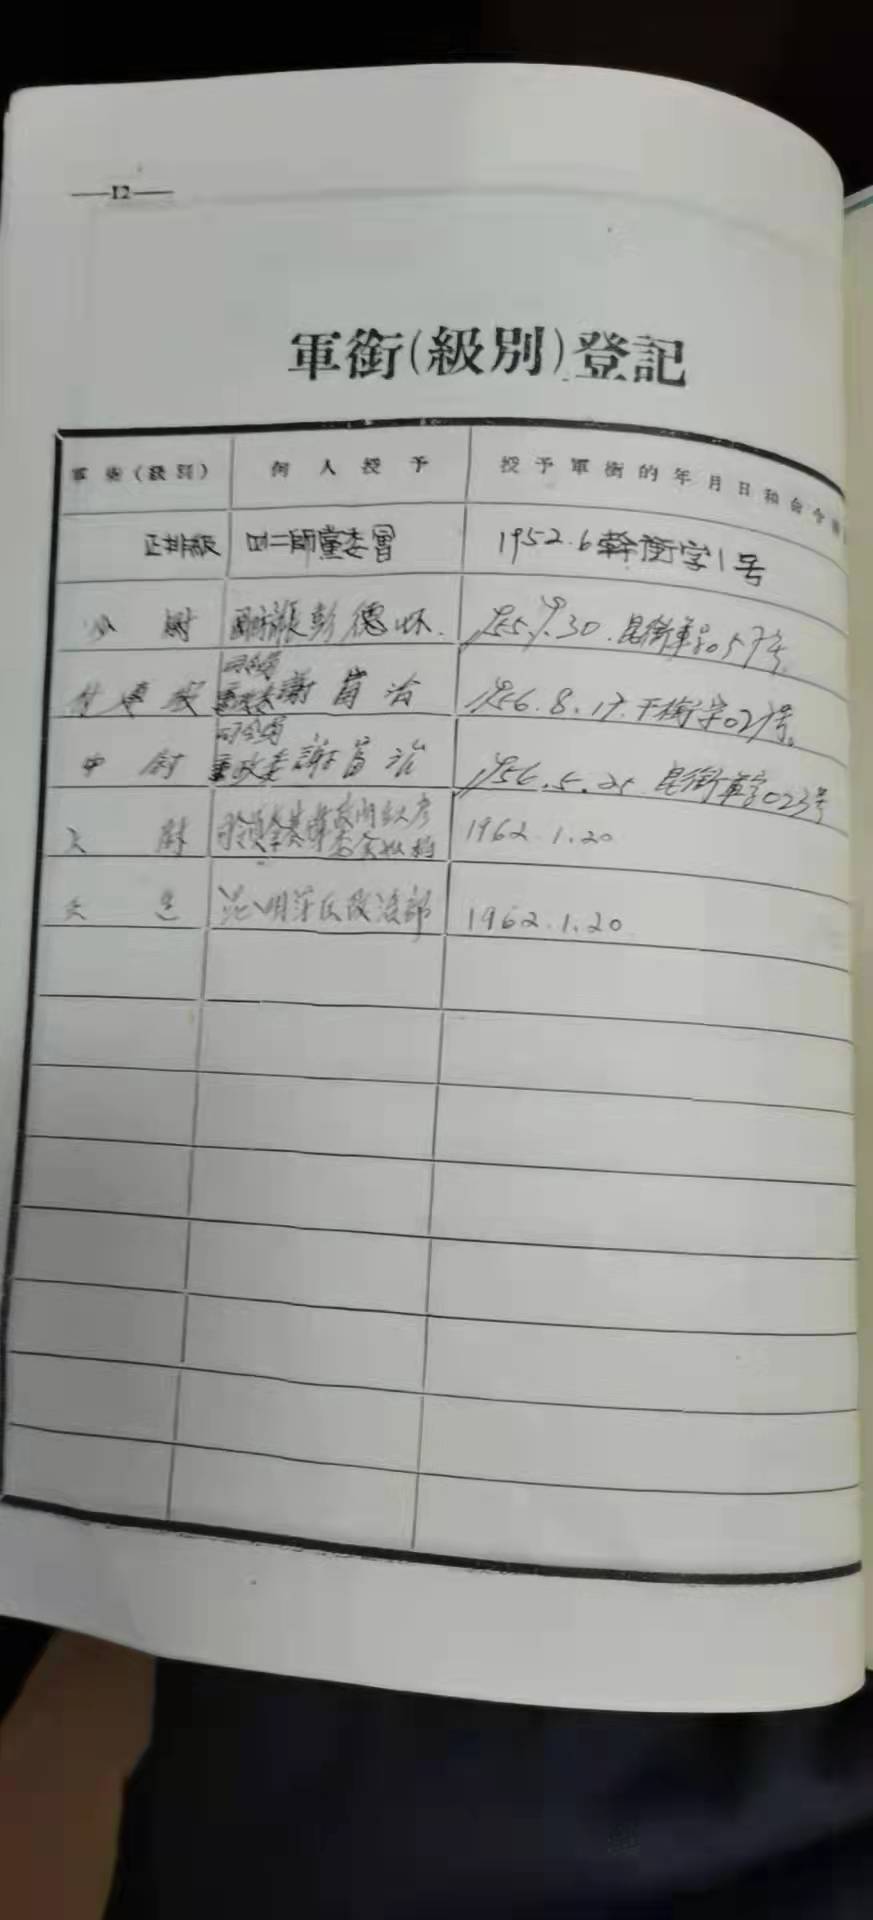 12
軍銜(級別)登記
軍銜(級別) 何人授予 授予軍銜的年月日和命令
正排級 四二師黨委會 1952.6幹銜字1号
少尉 國防部長彭德怀 1955.9.30.昆銜軍字057号
付連級 司令員
兼政委謝富治 1956.8.17.干銜字027号。
中尉 司令員
兼政委謝富治 1956.5.25.昆銜軍字023号
上尉 司令員秦基偉 政 閻红彦 1962.1.20
昆明军区政治部 1962.1.20